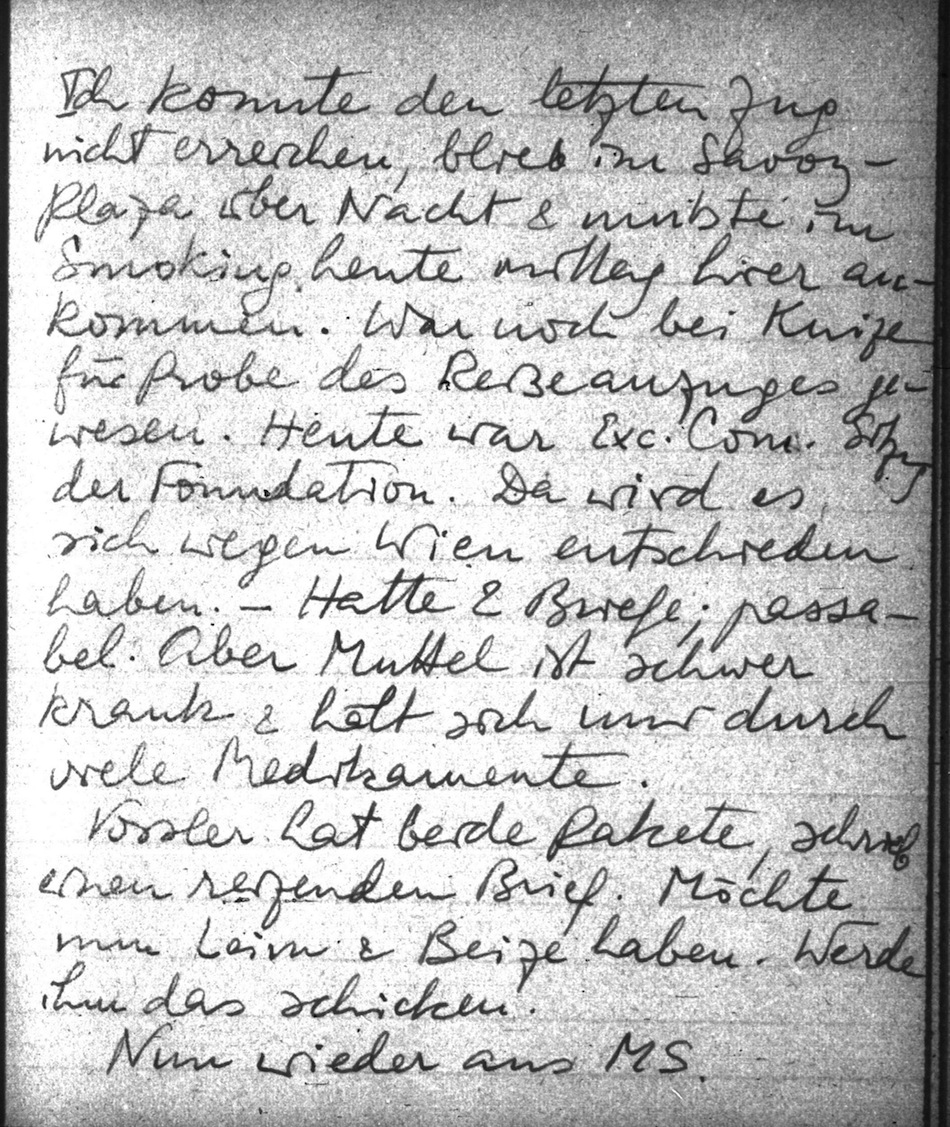 Ich konnte den letzten Zug
nicht erreichen, blieb im Savoy-
Plaza über Nacht & musste im
Smoking heute mittag hier an-
kommen. War noch bei Knize
für Probe des Reiseanzuges ge-
wesen. Heute war Exc. Com. Sitzg
der Foundation. Da wird es
sich wegen Wien entschieden
haben. – Hatte 2 Briefe; passa-
bel. Aber Muttel ist schwer
krank & hält sich nur durch
viele Medikamente.
Vossler hat beide Pakete, schrieb
einen reizenden Brief. Möchte
nun Leim & Beize haben. Werde
ihm das schicken.
Nun wieder ans MS.